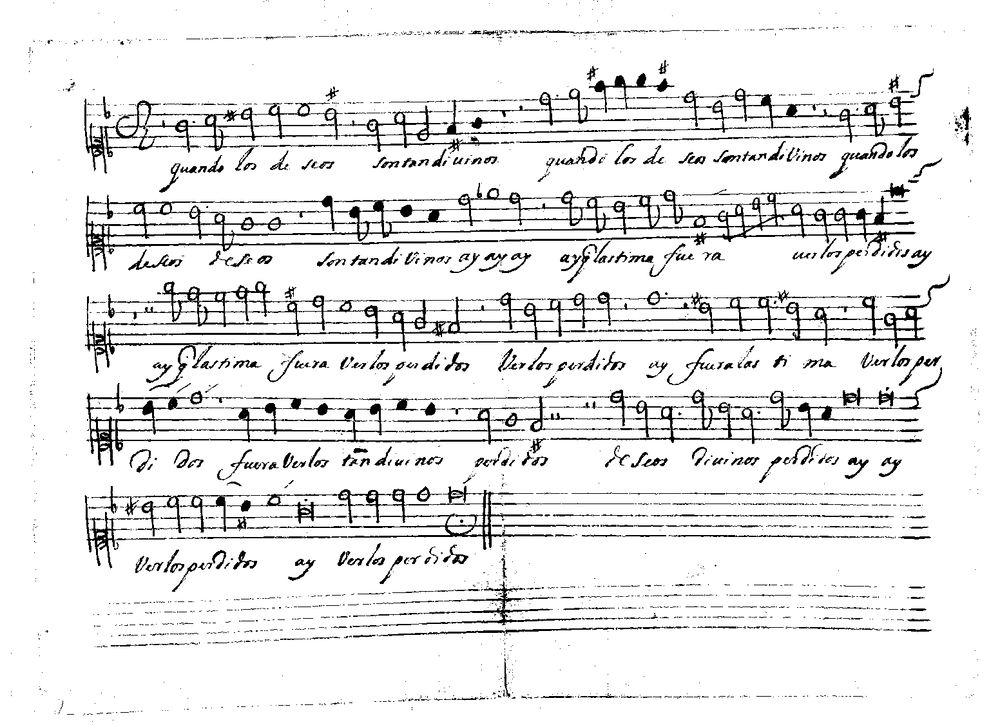 quando los de seos sontandivinos quando los de seos sontandiVinos quando los
deseos deseos sontandiVinos ay ay ay ay q lastima fue ra verlos perdidos ay
ay q lastima fuera Verlos perdidos Verlos perdidos ay fueralas ti ma Verlos per
di dos fuera Verlos tan divinos perdidos deseos divinos perdidos ay ay
Verlos perdidos ay Verlos perdidos